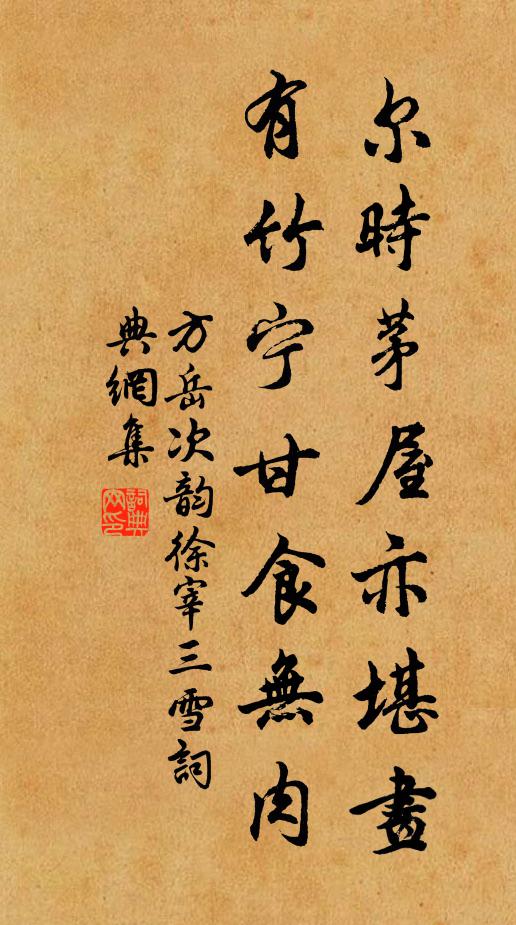 尔時茅屋亦堪畫
有竹宁甘食無肉
方岳次韵徐宰三雪詞
典網集
詞典网印